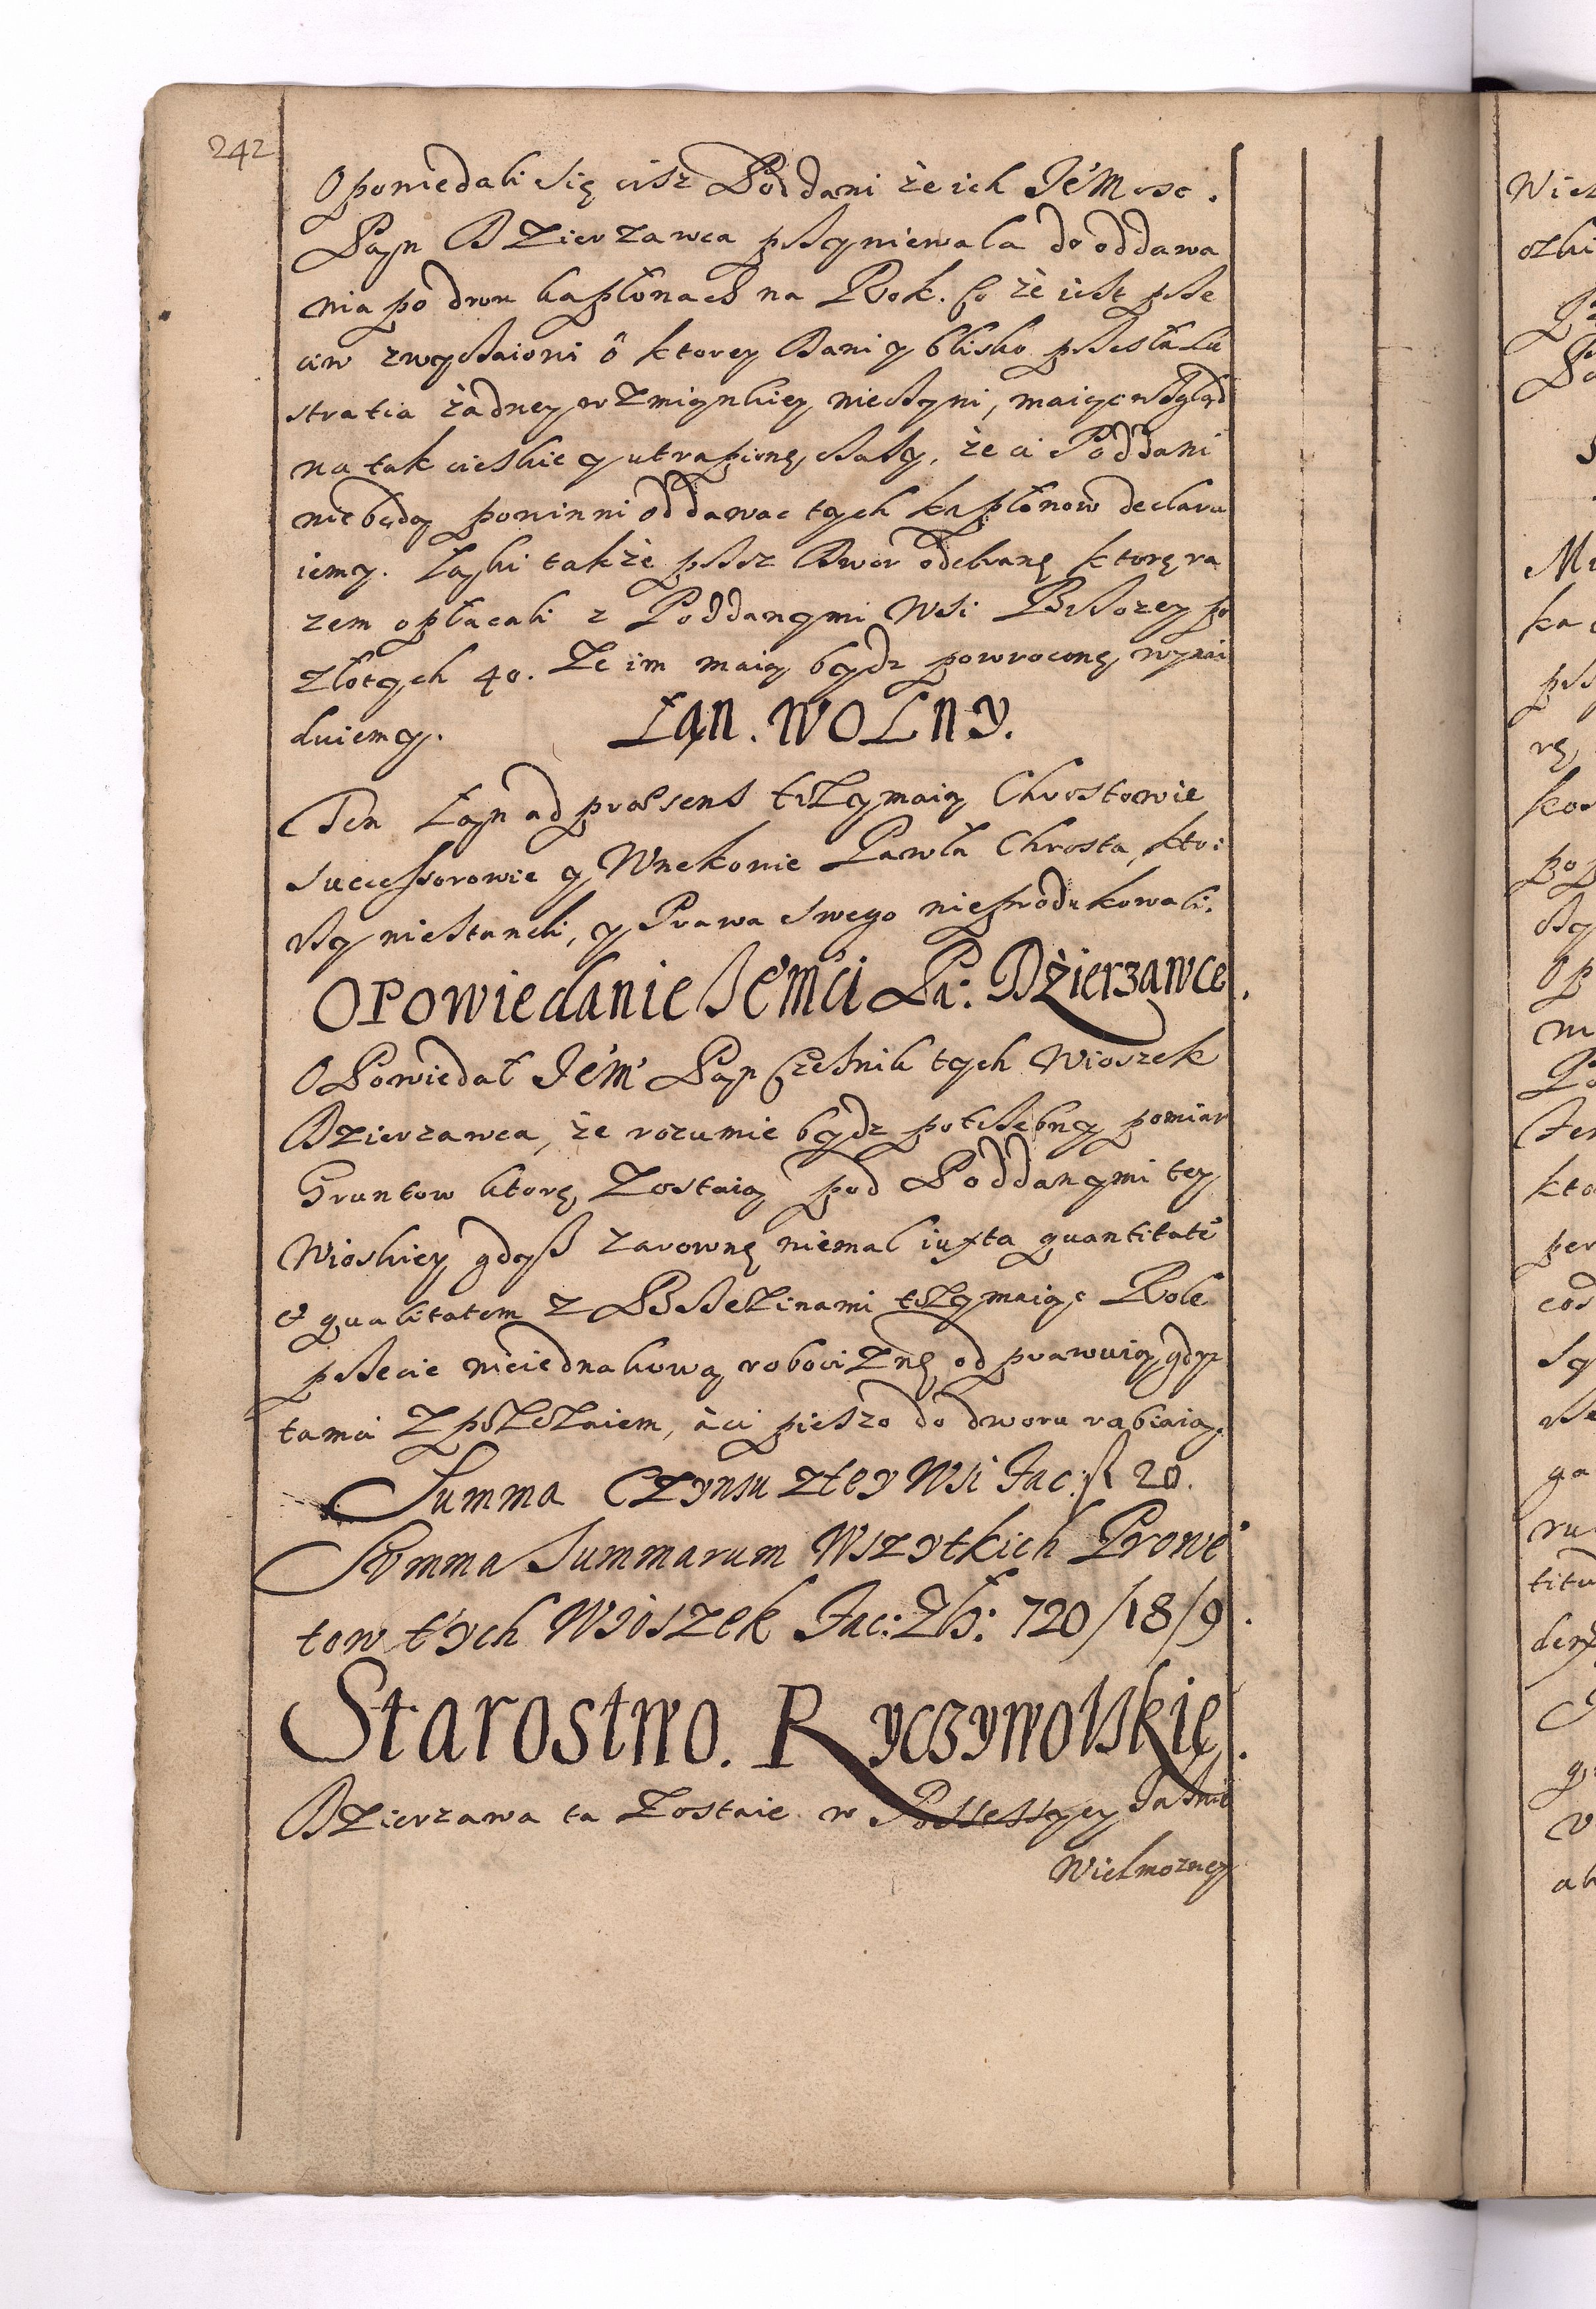 242
Opowiedali się cisz Poddani że ich Jé Mosc.
Pąn Dzierzawca psyniewala do oddawa
nia po dwu kapłonach na Rok. Co że iest pse
ciw zwyczaiowi ô ktorey Dani y blisko pszesła Lu
stratia żadney wzmiąnkiey nieczyni, maiąc wzgląd
na tak cieskie y utrapionę czasy, że ci Poddani
niebędą powinni oddawac tych kapłonow declaru
iemy. Ląski także pszez Dwor odebranę ktorę ra
zem opłacali z Poddanymi Wsi Brzozey po
złotych 40. Ze im maią bydz powroconę, wynai
duiemy.
ŁąN. WOLNY.
Ten Łąn ad præsens trzymaią Chrostowie
Successorowie y Wnekowie Pawła Chrosta, kto:
rzy niestaneli, y Prawa swego nieprodukowali.
OPOwiedanie Jé'mći Pa: Dzierzawce.
OPowiedał Jé'm' Pąn Czesnik tych Wioszek
Dzierzawca, że rozumie bydz potrzebny pomiar
Gruntow ktorę zostaią pod Poddanymi tey
Wioskiey gdysz zarownę niemal iuxta quantitatē
et qualitatem z Brzezinami trzymaiąc Role
pszecie nieiednakową robociznę odprawuią, gdyz
tamci z pszęzaiem, àci pieszo do dworu rabiaią.
Summa Czynsu ztey Wsi Fac: fl 20.
Summa Summarum Wszytkich Prowē
tow tych Wioszek Fac: Zł: 720/18/9.
Starostwo. Ryczywolskie.
Dzierzawa ta zostaie w Possessyey Jasnie
Wielmozney